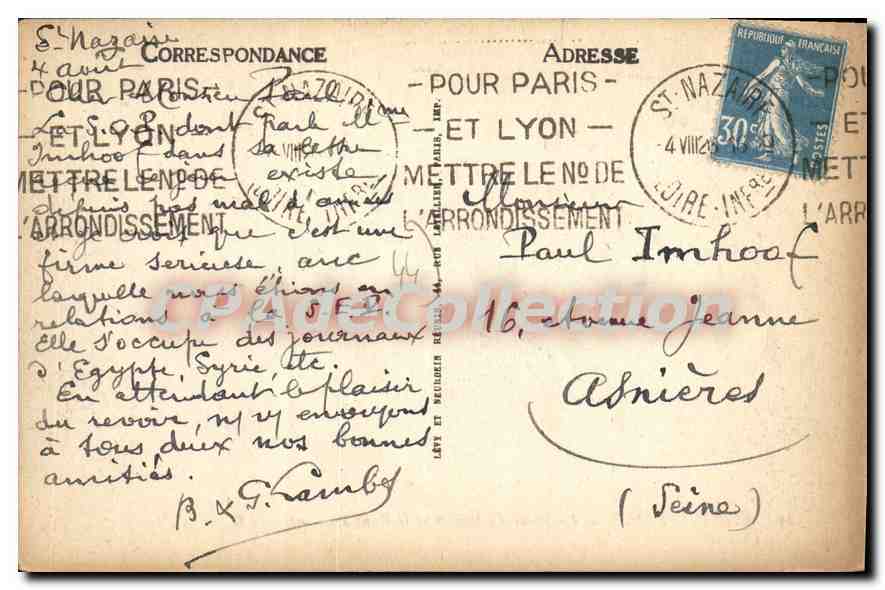 CORRESPONDANCE
St Nazaire
4 août
Cher Monsieur Paul
La S.O.P. dont parle Mme
Imhoof dans sa lettre
existe
depuis pas mal d'années
et je crois que c'est une
firme sérieuse, avec
laquelle nous étions en
relations à la S.E.P.
Elle s'occupe des journaux
d'Egypte, Syrie, etc.
En attendant le plaisir
du revoir, n/ v/ envoyons
à tous deux nos bonnes
amitiés.
B. & G. Lambos
44
LÉVY ET NEURDEIN RÉUNIS, 44, RUE LETELLIER, PARIS, IMP.
ADRESSE
Monsieur
Paul Imhoof
16, avenue Jeanne
Asnières
(Seine)
RÉPUBLIQUE FRANÇAISE
30c
POSTES
ST NAZAIRE
4 VIII 26
LOIRE-INFRE
-POUR PARIS-
-ET LYON-
METTRE LE NO DE
L'ARRONDISSEMENT
-POUR PARIS-
ET LYON
METTRE LE NO DE
L'ARRONDISSEMENT
ST NAZAIRE
VIII
LOIRE-INFRE
-POU
ET
METT
L'ARR
CPADeCollection